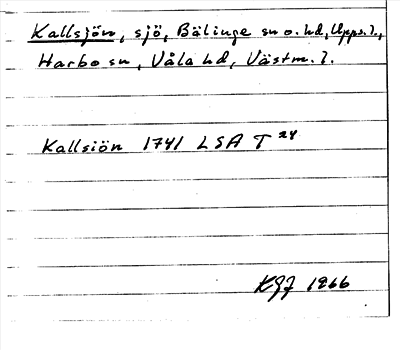 Kallsjön, sjö, Bälinge sn o. hd, Upps. l.,
Harbo sn, Våla hd, Västm. l.
Kallsiön 1741 LSA T 24
KGJ 1966